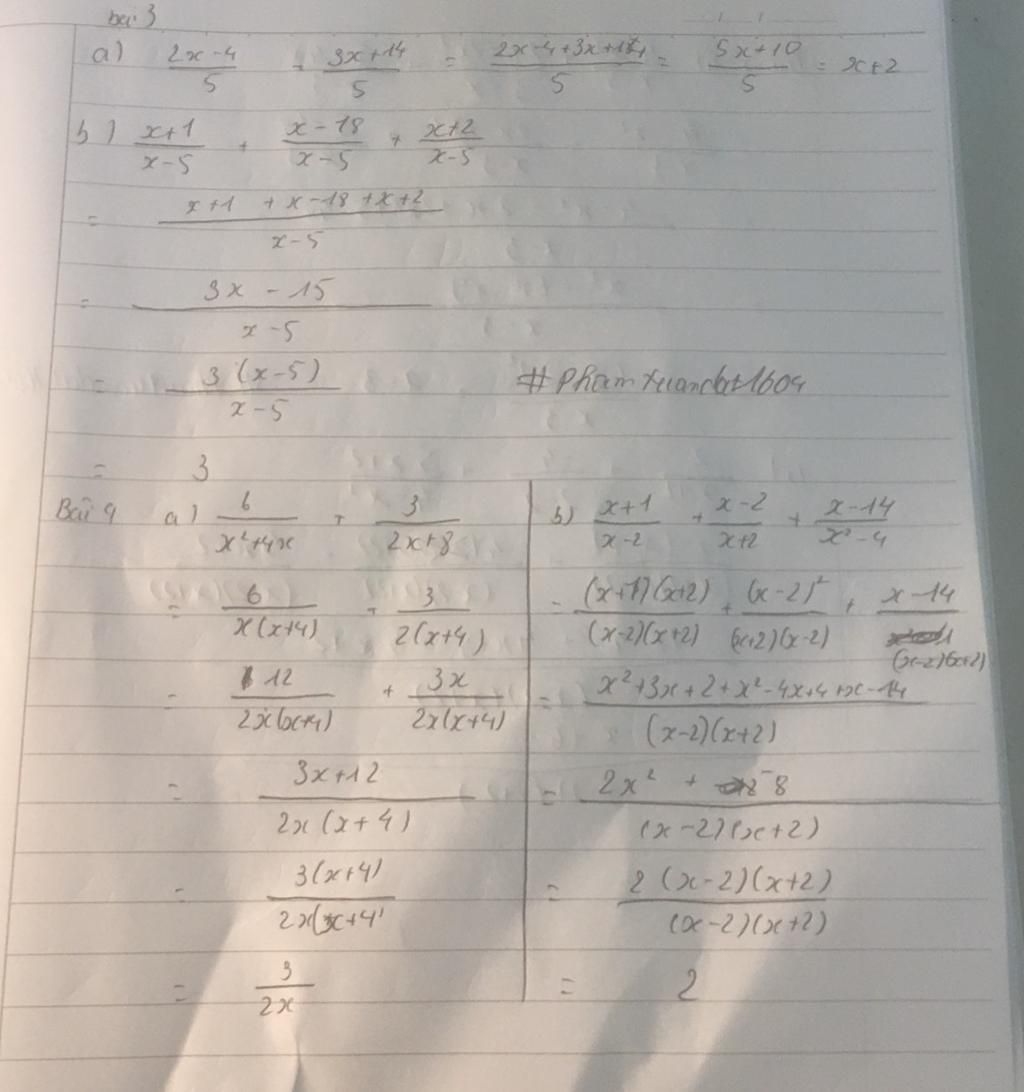 bài 3
a) (2x-4)/5 + (3x+14)/5 = (2x-4+3x+14)/5 = (5x+10)/5 = x+2
b) (x+1)/(x-5) + (x-18)/(x-5) + (x+2)/(x-5)
= (x+1+x-18+x+2)/(x-5)
= (3x-15)/(x-5)
= 3(x-5)/(x-5)
#phamxuandat1604
= 3
Bài 4 a) 6/(x²+4x) + 3/(2x+8)
= 6/(x(x+4)) + 3/(2(x+4))
= 12/(2x(x+4)) + 3x/(2x(x+4))
= (3x+12)/(2x(x+4))
= 3(x+4)/(2x(x+4)
= 3/(2x)
b) (x+1)/(x-2) + (x-2)/(x+2) + (x-14)/(x²-4)
= (x+1)(x+2)/((x-2)(x+2)) + (x-2)²/((x+2)(x-2)) + (x-14)/((x-2)(x+2))
= (x²+3x+2+x²-4x+4+x-14)/((x-2)(x+2))
= (2x² + -8)/((x-2)(x+2))
= 2(x-2)(x+2)/((x-2)(x+2))
= 2